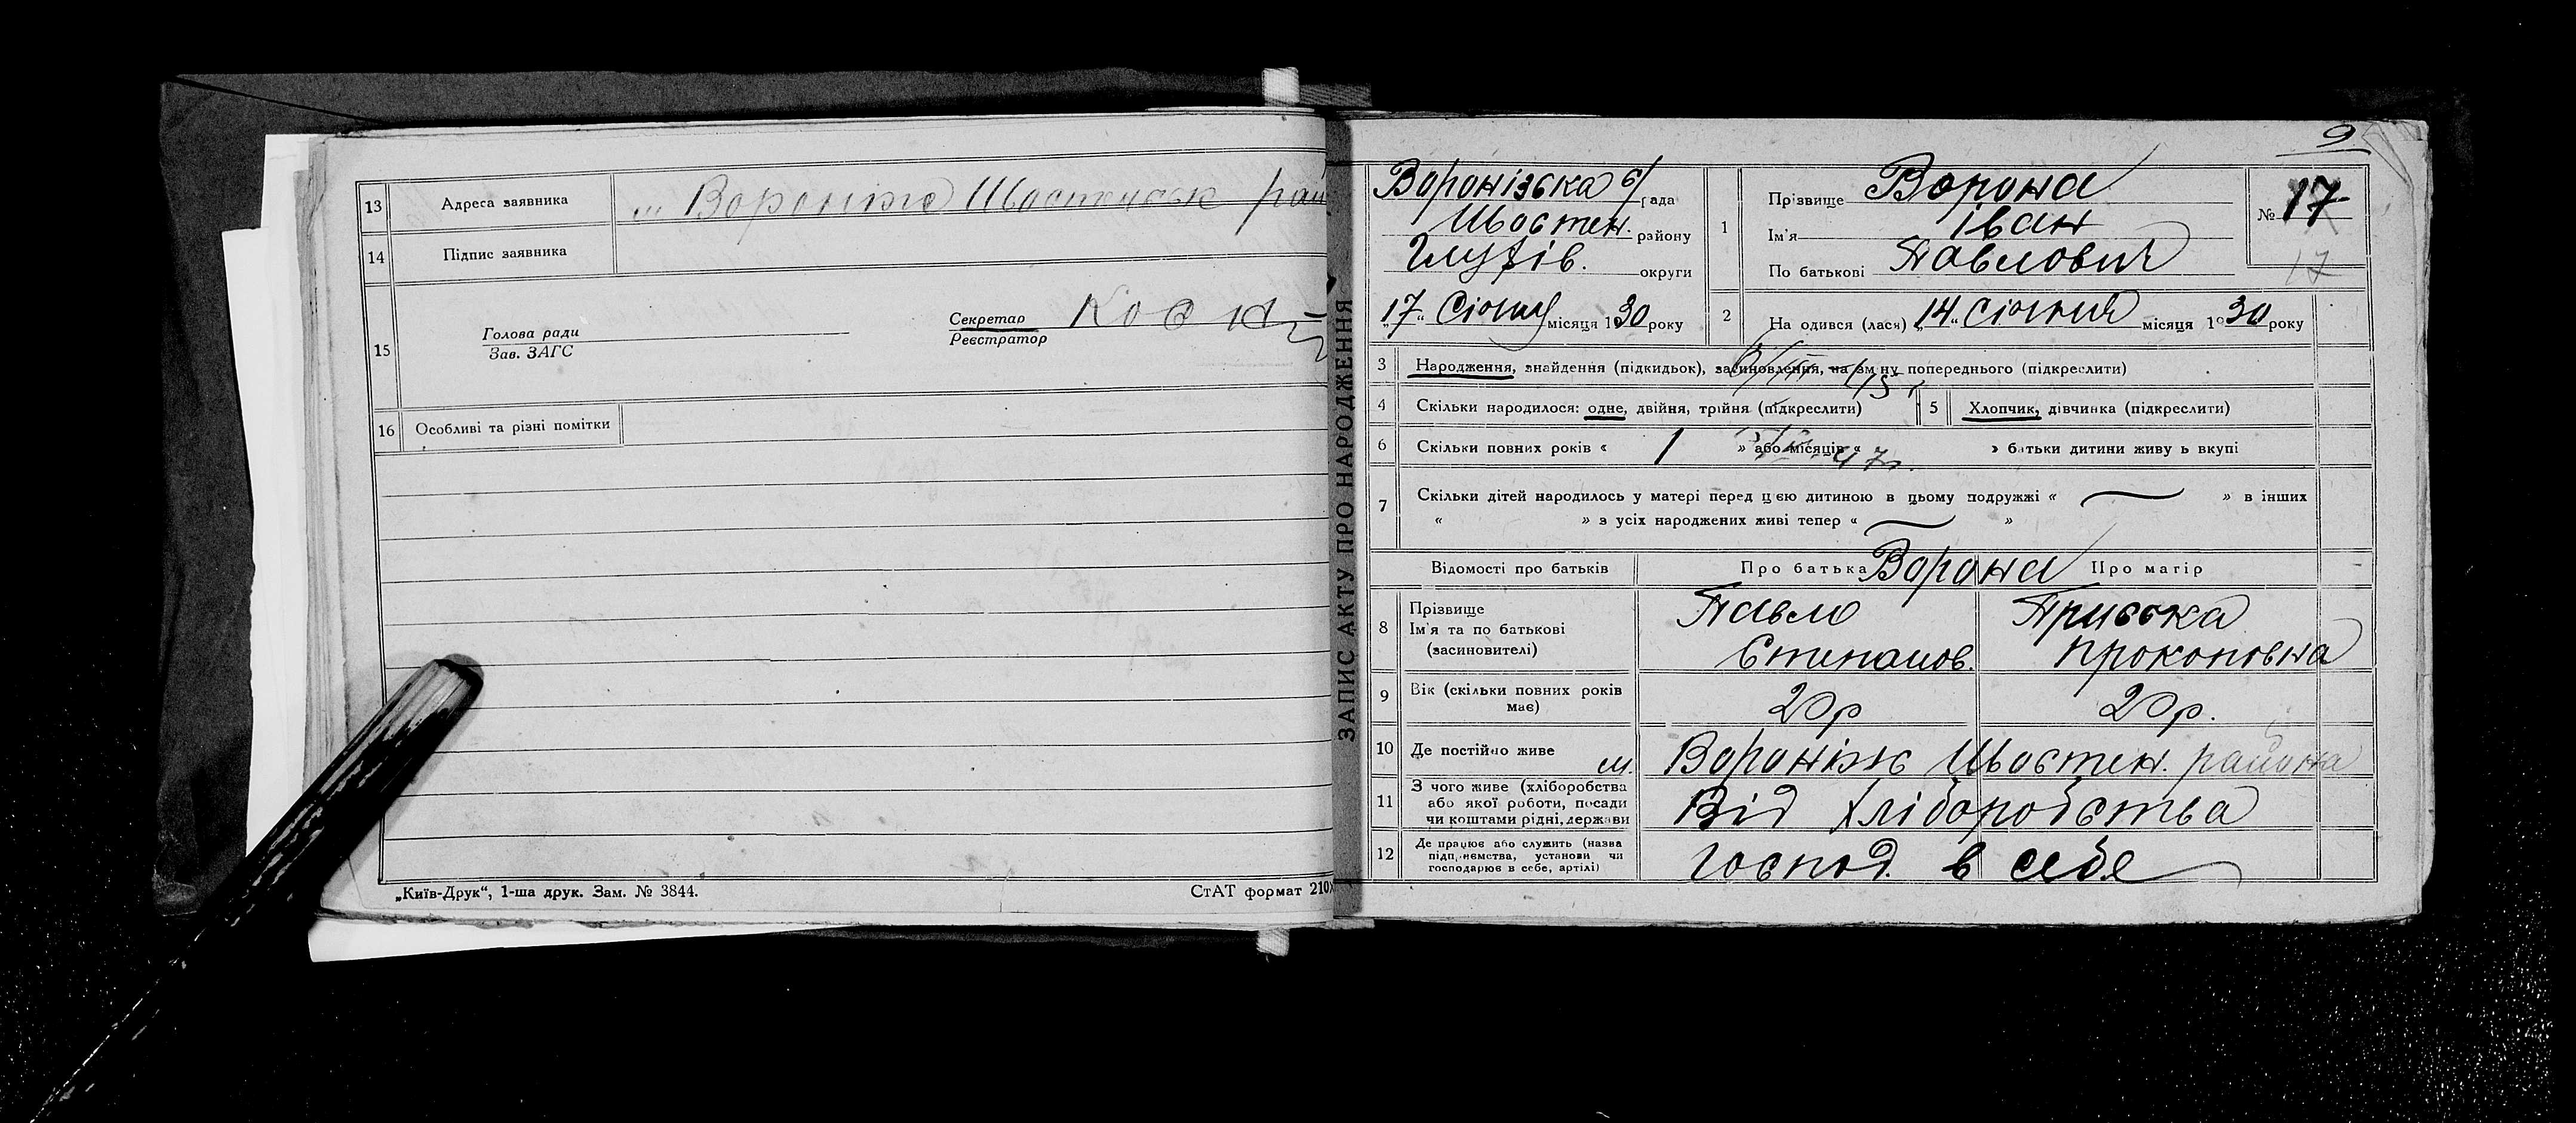 13 Адреса заявника м. Вороніж Шостенськ рай
14 Підпис заявника
15 Голова ради
Зав. ЗАГС
Секретар
Реєстратор
16 Особливі та різні помітки
„Київ-Друк“, 1-ша друк. Зам. № 3844.
СтАТ формат 210
ЗАПИС АКТУ ПРО НАРОДЖЕННЯ
9
Воронізька с/рада
Шостен. району
Глухів. округи
„17“ Січня місяця 1930 року
1 Прізвище Ворона
Ім'я Іван
По батькові Павлович
№ 17
17
2 На одився (лася) „14“ Січня місяця 1930 року
3 Народження, знайдення (підкидьок), засиновлення, на зм ну попереднього (підкреслити)
4 Скільки народилося: одне, двійня, трійня (підкреслити) 5 Хлопчик, дівчинка (підкреслити)
6 Скільки повних років « 1 » або місяців « » батьки дитини живу ь вкупі
7 Скільки дітей народилось у матері перед цією дитиною в цьому подружжі « — » в інших
« » з усіх народжених живі тепер « — »
Відомості про батьків Про батька Ворона Про матір
8 Прізвище
Ім'я та по батькові
(засиновителі)
Павло
Степанов.
Приська
Прокоповна
9 Вік (скільки повних років
має)
20р
20р.
10 Де постійно живе м. Вороніж Шостен. района
11 З чого живе (хліборобства
або якої роботи, посади
чи коштами рідні, держави
Від хліборобства
12 Де працює або служить (назва
підп, иємства, установи чи
господарює в себе, артілі)
господ. в себе